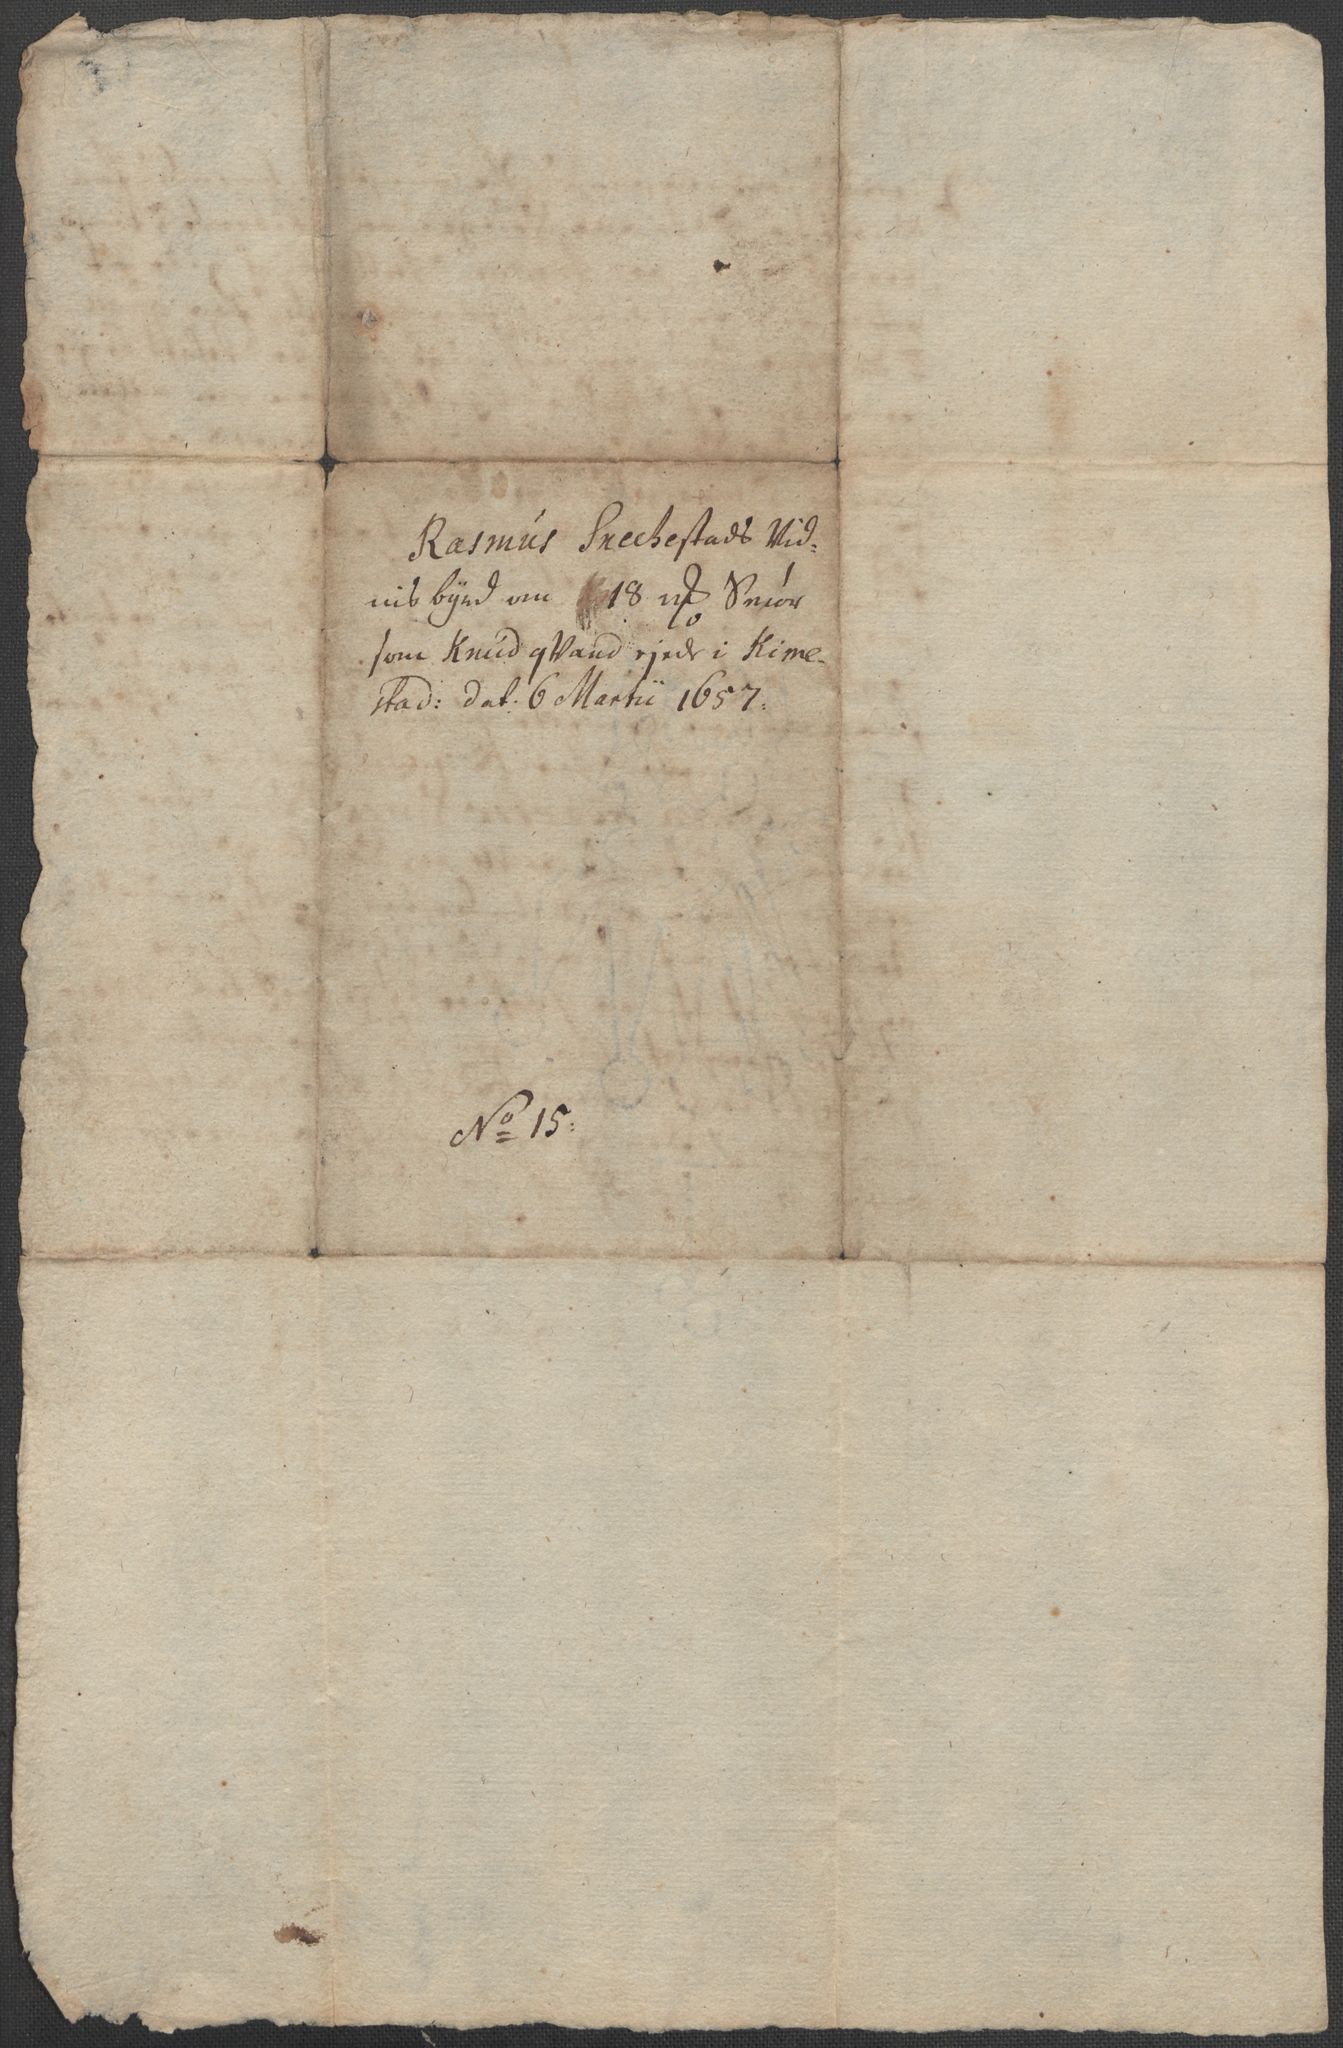 Rasmús Snechestads Vid=
nisbyrd om 18 Smør
som Knúd qvand ejede i Kime-
stad: dat: 6 Martii 1657.
No 15: